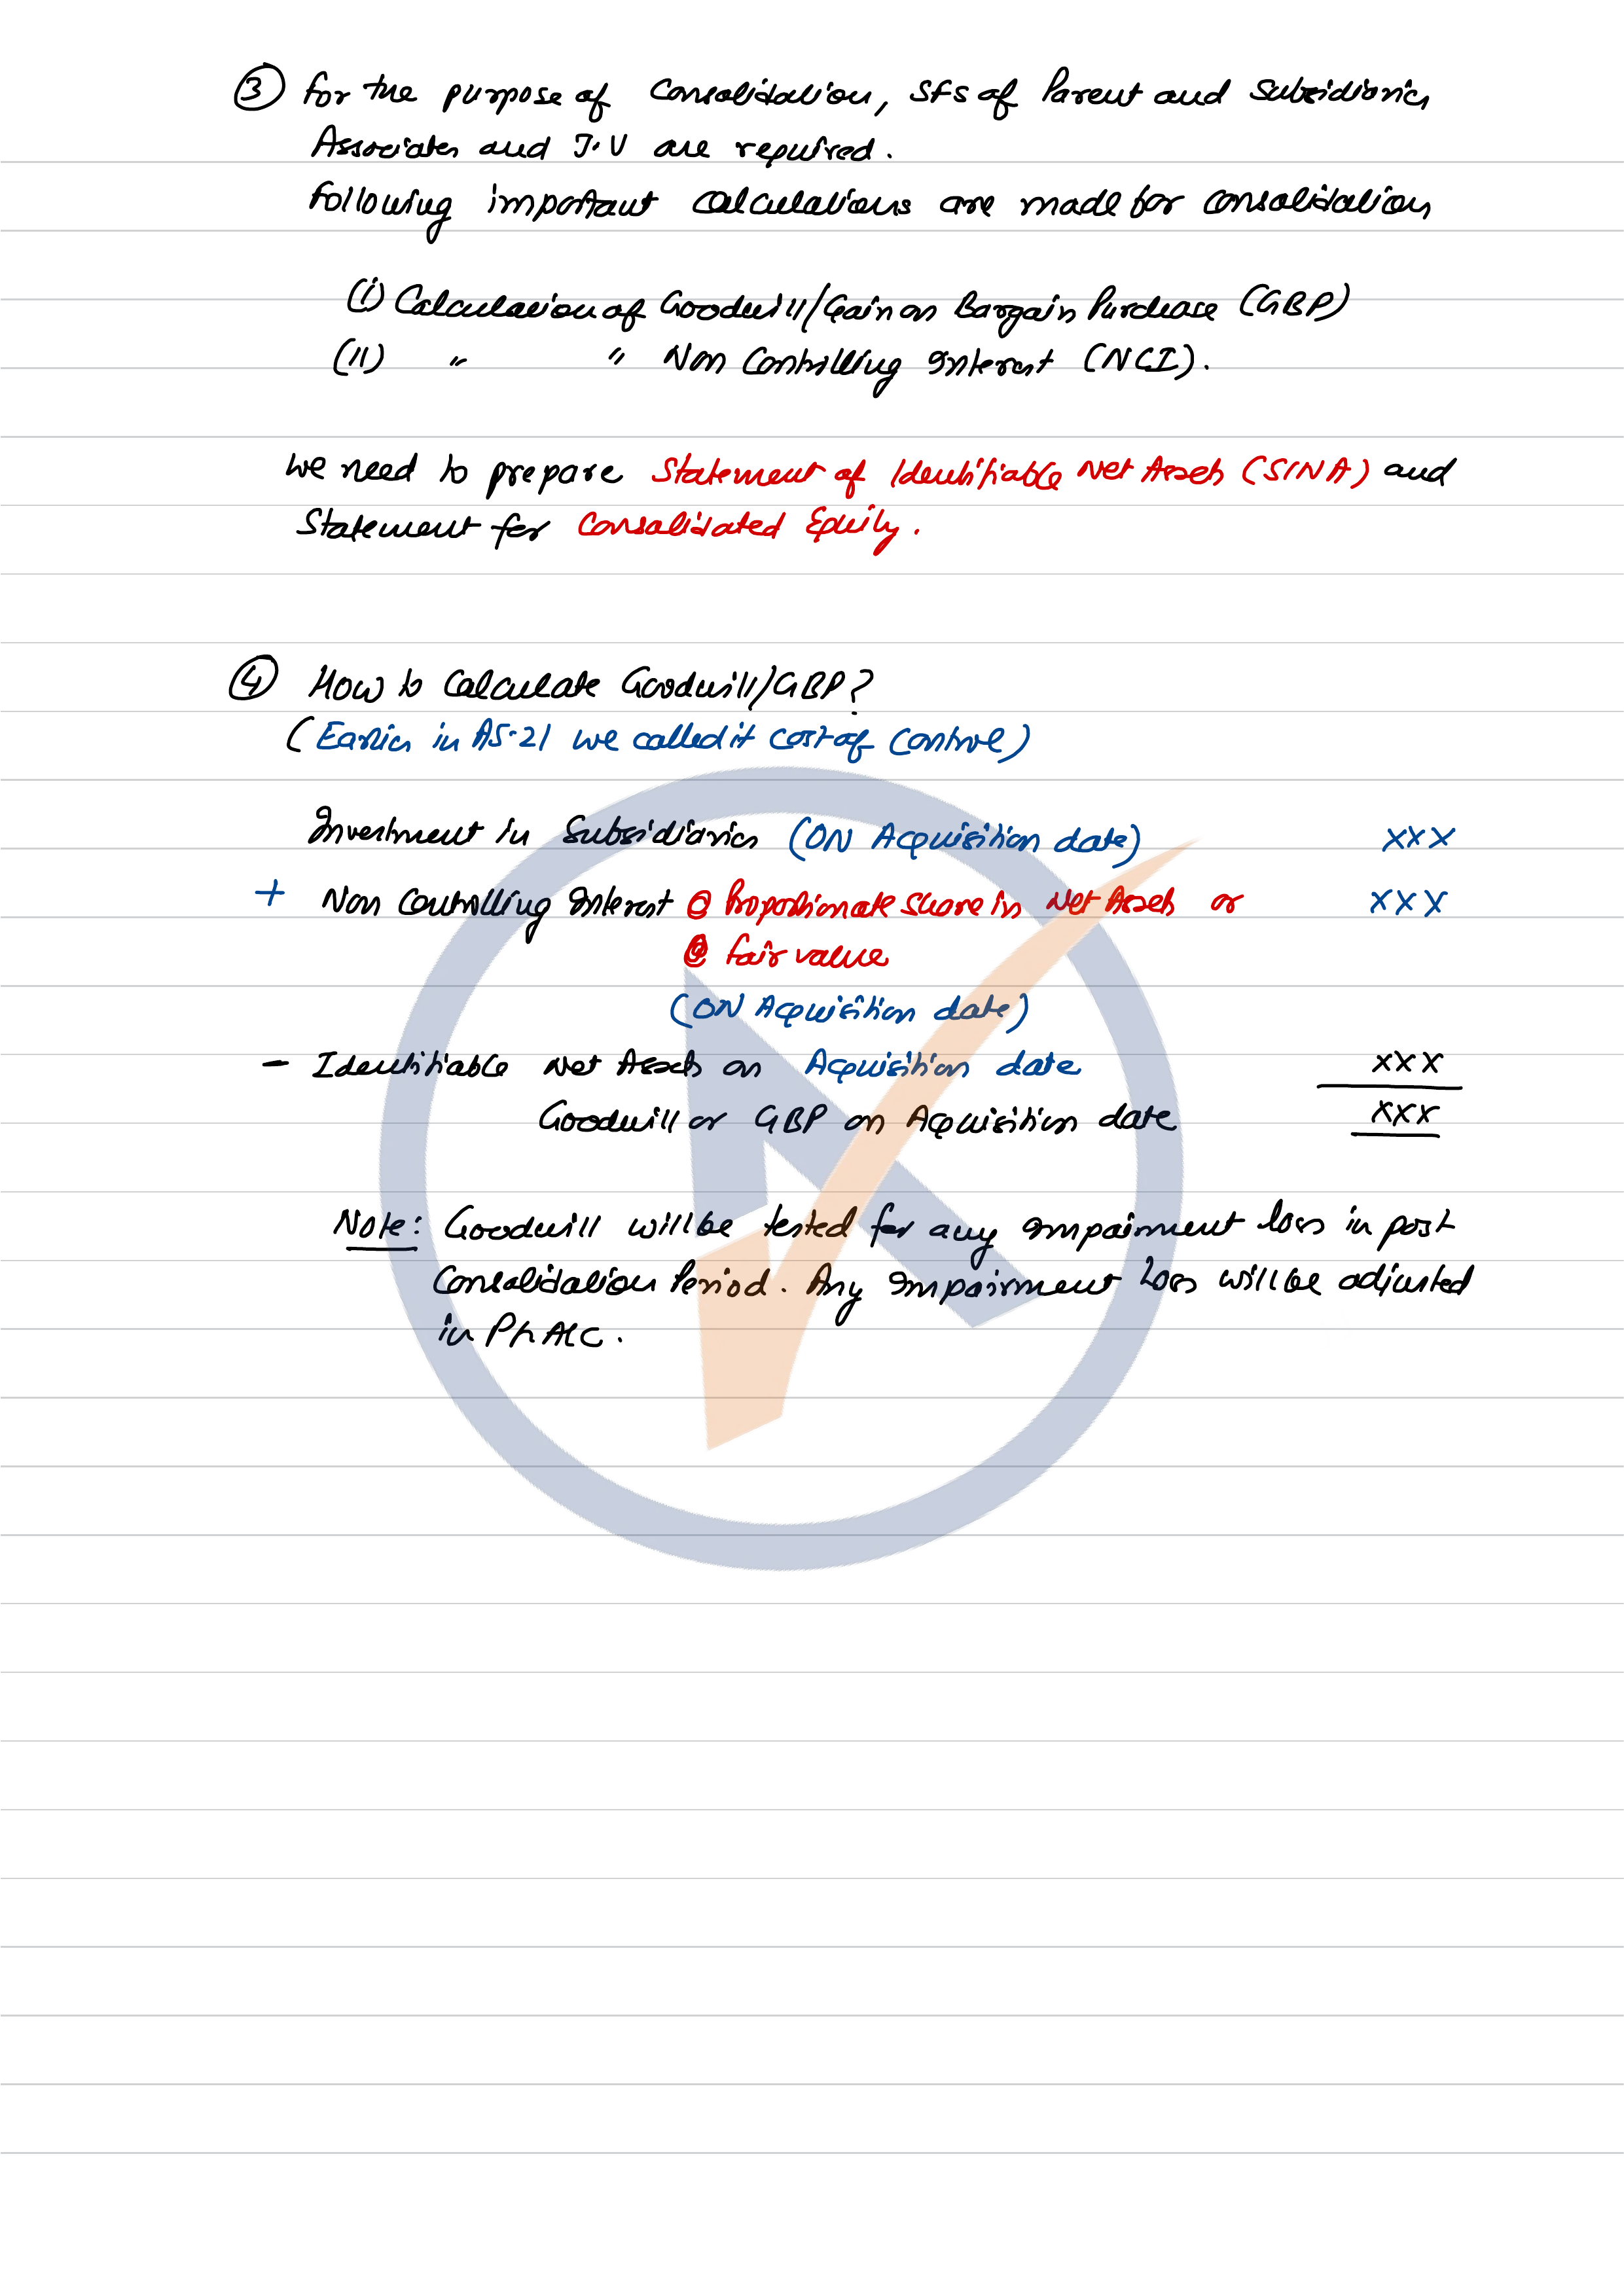 ③ For the purpose of Consolidation, SFs of Parent and Subsidiaries
Associates and J.V are required.
Following important calculations are made for consolidation
(i) Calculation of Goodwill/Gain on Bargain Purchase (GBP)
(ii) " " Non Controlling Interest (NCI).
We need to prepare Statement of Identifiable Net Assets (SINA) and
Statement for Consolidated Equity.
④ How to Calculate Goodwill/GBP?
(Earlier in AS-21 we called it cost of Control)
Investment in Subsidiaries (ON Acquisition date) xxx
+ Non Controlling Interest @ Proportionate Share in Net Assets or xxx
@ fair value
(ON Acquisition date)
- Identifiable Net Assets on Acquisition date xxx
Goodwill or GBP on Acquisition date xxx
Note: Goodwill will be tested for any Impairment loss in post
Consolidation Period. Any Impairment Loss will be adjusted
in P/L A/C.